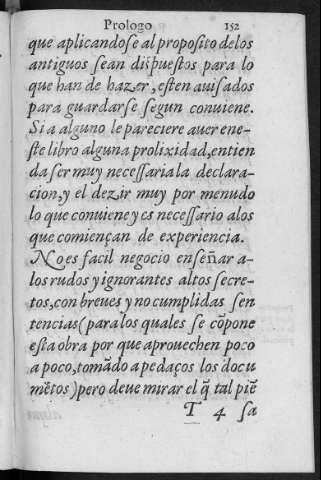 Prologo 152
que aplicandose al proposito delos
antiguos sean dispuestos para lo
que han de hazer, esten auisados
para guardarse segun conuiene.
Si a alguno le pareciere auer ene-
ste libro alguna prolixidad, entien
da ser muy necessaria la declara-
cion, y el dezir muy por menudo
lo que conuiene y es necessario alos
que comiençan de experiencia.
No es facil negocio enseñar a-
los rudos y ignorantes altos secre-
tos, con breues y no cumplidas sen
tencias (para los quales se cõpone
esta obra por que aprouechen poco
a poco, tomãdo a pedaços los docu
mẽtos) pero deue mirar el q̃ tal piẽ
T 4 sa